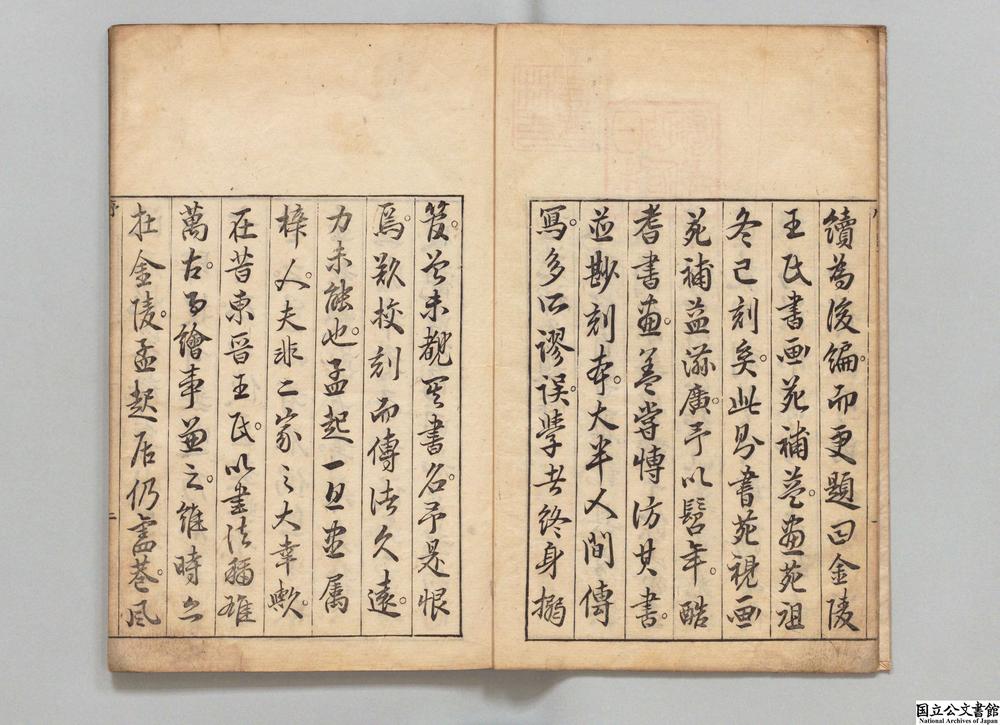 續為後編而更題曰金陵
王氏書画苑補益畫苑祖
冬已刻矣此為書苑視画
苑補益添廣予以髫年酷
耆書畫蓋嘗博訪其書
並尠刻本大半人間傳
寫多所謬誤學者終身搦
管並未覩其書名予是恨
焉欲挍刻而傳法久遠
力未能也孟起一旦並属
梓人夫非二家之大幸歟
在昔東晋王氏以書法稱雄
萬古而繪事兼之維時亦
在金陵孟起居仍盡巷風
国立公文書館
National Archives of Japan